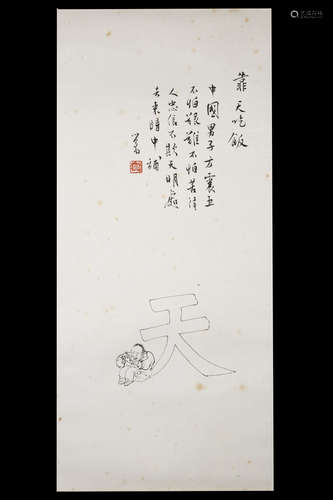 靠天吃飯
中國男子方震五
不怕艱難不怕苦待
人忠信不欺天明處
去來暗中補
天